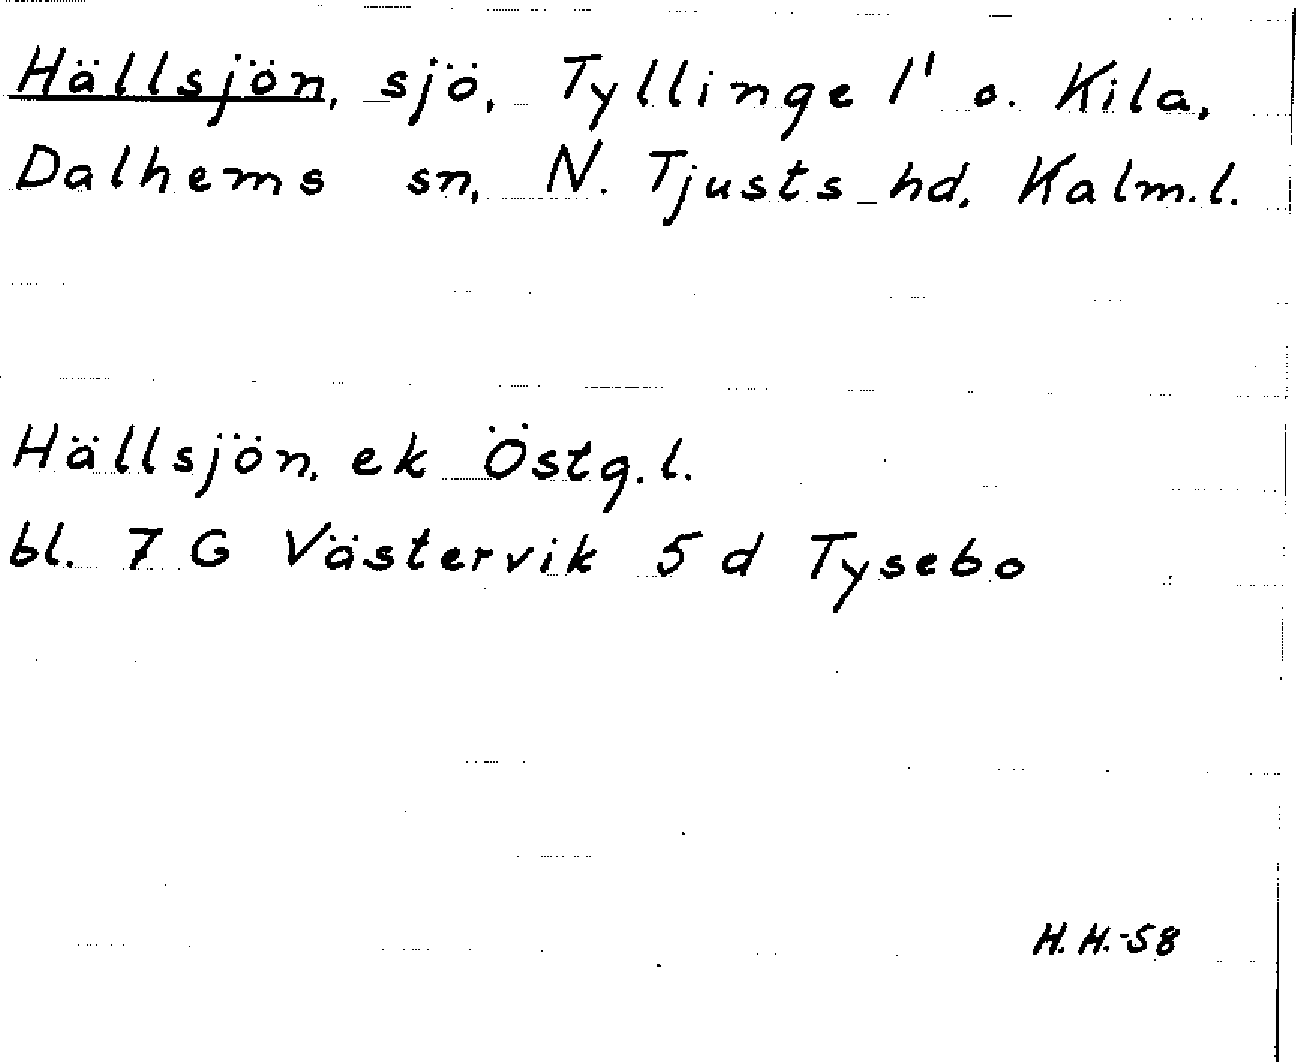 Hällsjön, sjö, Tyllinge 1' o. Kila,
Dalhems sn, N. Tjusts hd. Kalm.l.
Hällsjön, ek Östg.l.
bl. 7 G Västervik 5 d Tysebo
H.H.-58